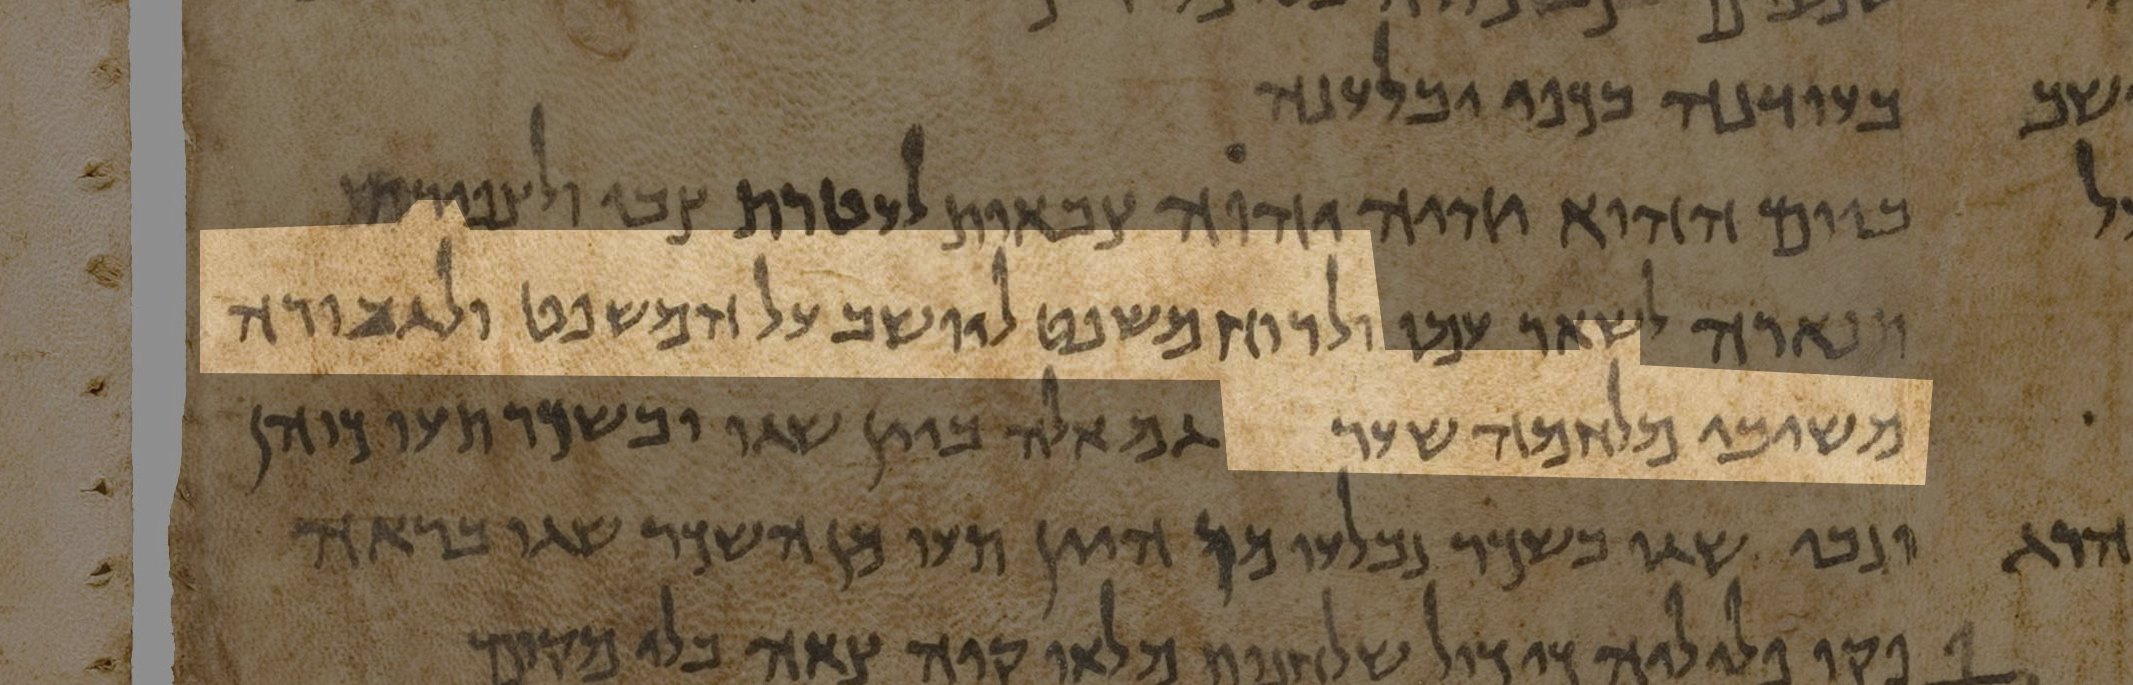 בעודנה בכפו יבלענה
ביום ההוא יהיה יהוה צבאות לעטרת צבי ולצפירת
תפארה לשאר עמו ולרוח משפט ליושב על המשפט ולגבורה
משיבי מלחמה שער גם אלה ביין שגו ובשכר תעו כוהן
ונבי שגו בשכר נבלעו מן היין תעו מן השכר שגו בראה
פקו פליליה כי כול שלחנות מלאו קיה צאה בלי מקום